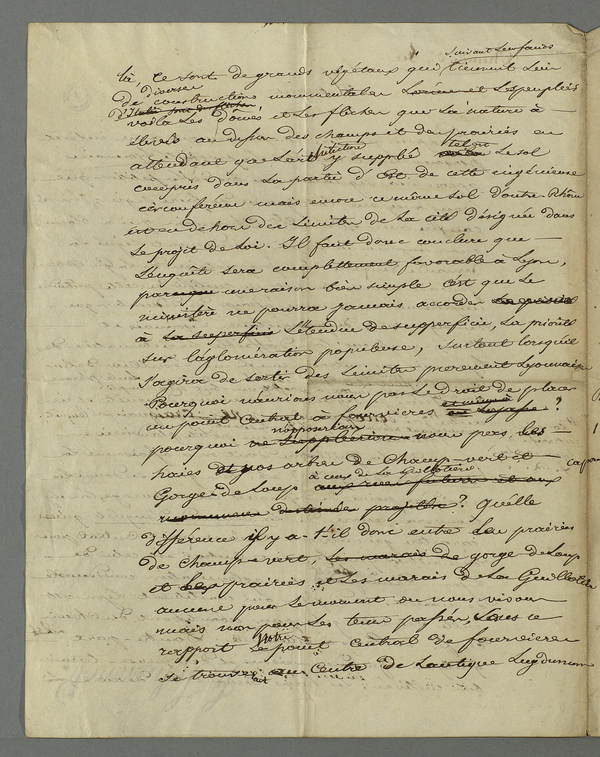 suivant Lenfanes
là, ce sont de grands végétaux qui tiennent Lieu
Diverses
De constructions monumentales et Les peupliers
d'Italie
voila Les Domes et Les flèches que La nature à
élevés au dessus des champs et des prairies en
attendant que L'art y supplée Le sol
institution
tel est
compris dans La partie d'Est de cette ingénieuse
circonference mais encore ce même sol d'outre Rhone
est en dehors des Limites de La cité désignée dans
Le projet de Loi. Il faut donc conclure que
L'enquête sera complettement favorable à Lyon,
par une raison bien simple c'est que Le
ministère ne pourra jamais accorder La priorité
à La superficie L'étendue de superficie, La priorité
sur L'aglomération populeuse, surtout lorsqu'il
s'agira de sortir des Limites purement Lyonnaises
Pourquoi n'aurions nous pas Le droit de placer
un point Central à fourvieres ?
pourquoi nous pas, Les
n'opposerions
haies et nos arbres de Champ-vert et
Gorge de Loup
à ceux de La Guillotière
? Quelle
Difference il y a-t-il donc entre Les prairies
de Champ-vert, Les marais de gorge de Loup
et Les prairies et Les marais de La Guillotière
aucune pour Le moment ou nous vivons
mais non pour Les tems passés, sous ce
rapport Le point Central de fourvieres
notre
se trouvait au Centre de L'antique Lugdunum